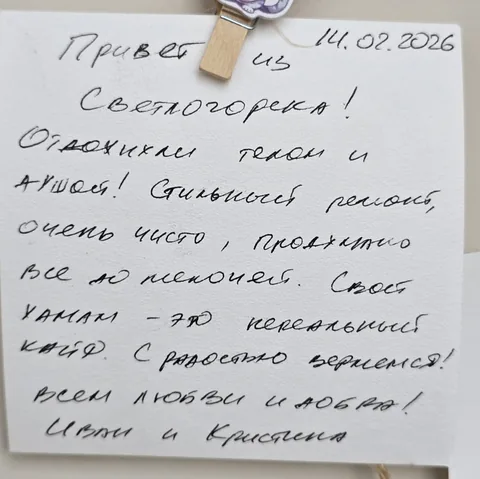 14.02.2026
Привет из
Светлогорска!
Отдохнули телом и
душой! Стильный ремонт,
очень чисто, продумано
все до мелочей. Свой
хамам - это нереальный
кайф. С радостью вернемся!
Всем любви и добра!
Иван и Кристина